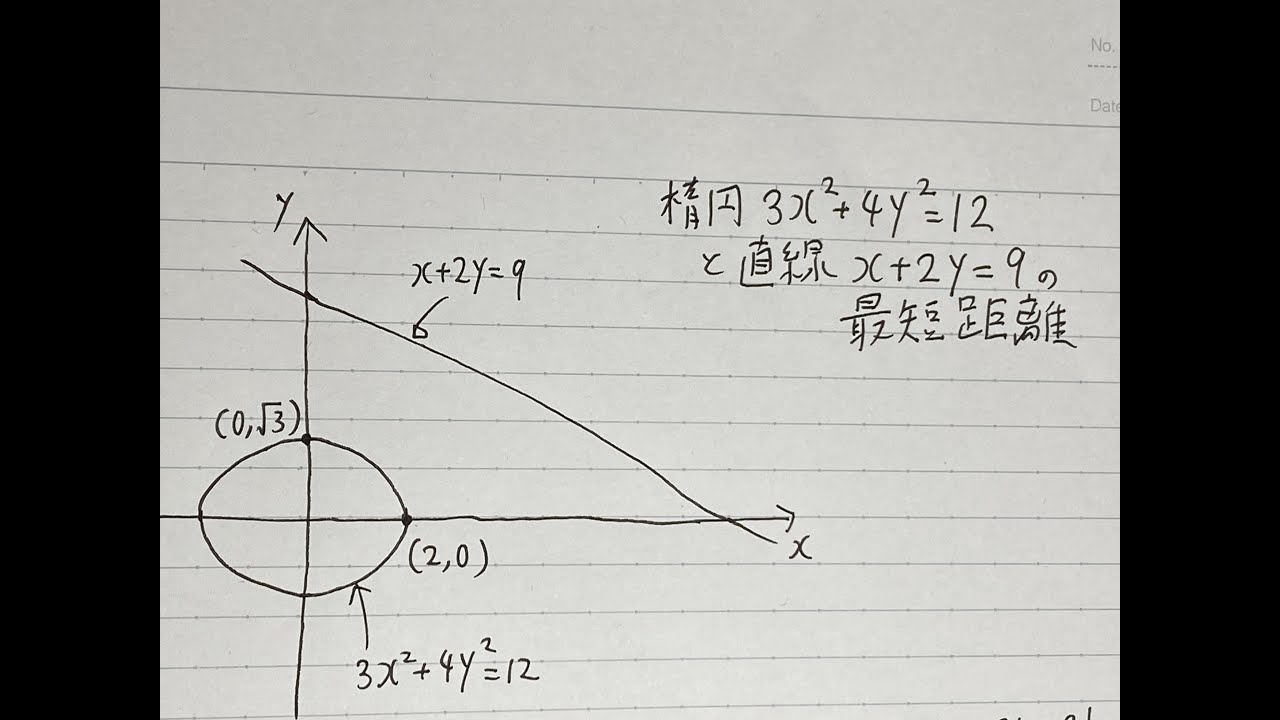 No.
Date
楕円 3x²+4y²=12
と直線 x+2y=9の
最短距離
y
x+2y=9
(0,√3)
(2,0)
x
3x²+4y²=12